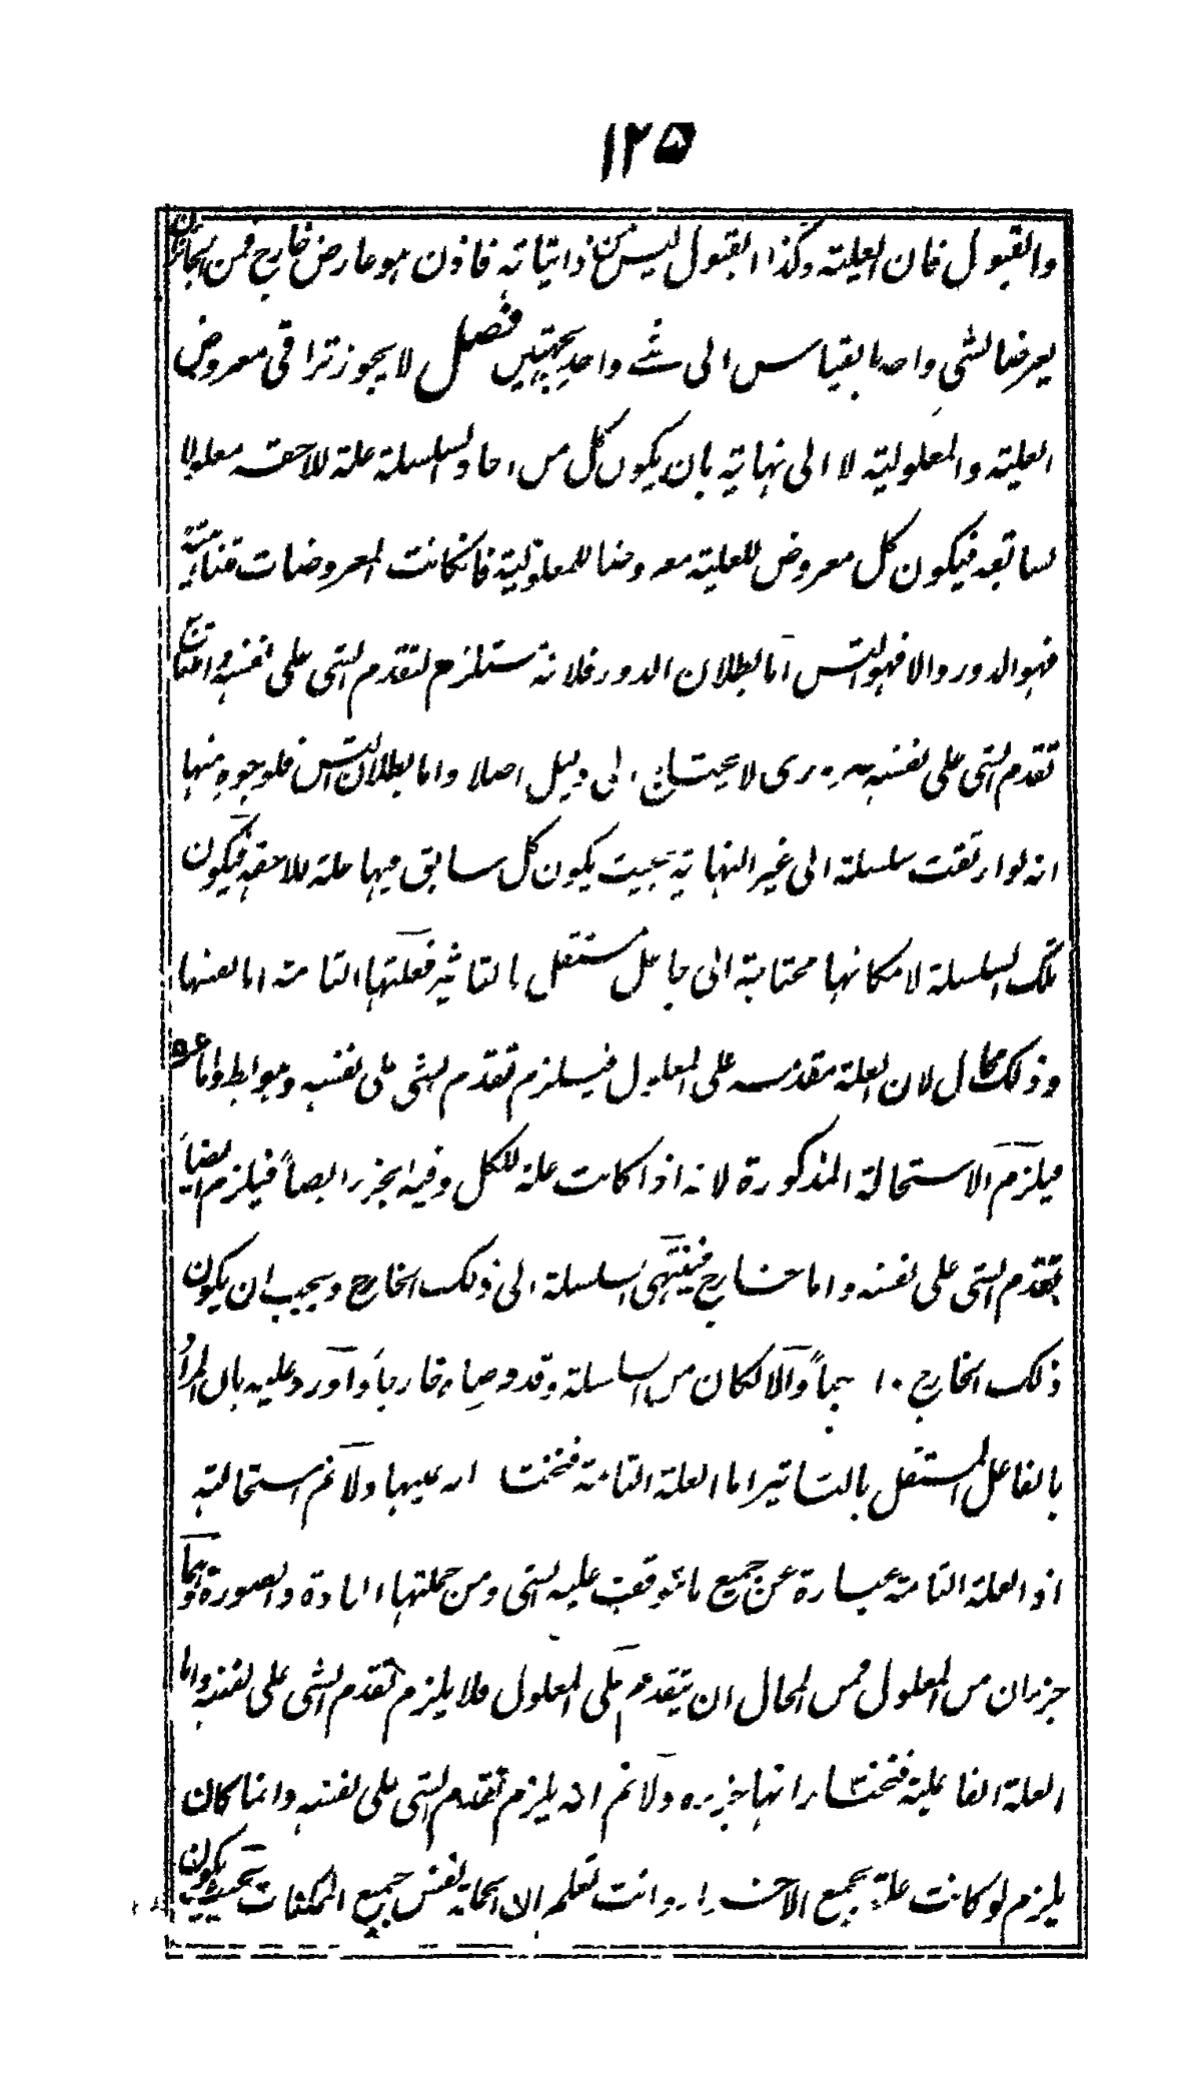 ١٢٥
والقبول فان العلية وكذا القبول ليس من ذاتياته فاذن هو عارض خارج فمن الجائز ان
يعرضا لشي واحد بالقياس الى شے واحد بجهتين فصل لا يجوز تراقى معروض
العلية والمعلولية لا الى نهاية بان يكون كل من احاد السلسلة علة للاحقه معلولا
لسابقه فيكون كل معروض للعلية معروضا للمعلولية فانكانت المعروضات متناهية
فهو الدور والا فهو التس اما بطلان الدور فلانه مستلزم لتقدم الشى على نفسه وامتناع
تقدم الشى على نفسه ضرورى لا يحتاج الى دليل اصلا واما بطلان التس فلوجوه منها
انه لو ارتقت سلسلة الى غير النهاية بحيث يكون كل سابق فيها علة للاحقه فيكون
تلك السلسلة لامكانها محتاجة الى جاعل مستقل بالتاثير فعلتها التامة اما عينها
وذلك محال لان العلة مقدمه على المعلول فيلزم تقدم الشى على نفسه وهو باطل واما جزءه
فيلزم الاستحالة المذكورة لانه اذا كانت علة للكل وفيه الجزء ايضاً فيلزم ايضاً
تقدم الشى على نفسه واما خارج فينتهى السلسلة الى ذلك الخارج ويجب ان يكون
ذلك الخارج واجباً والا لكان من السلسلة وقد وصفناه خارجاً واورد عليه بان المراد
بالفاعل المستقل بالتاثير اما العلة التامة فنختار انه عينها ولا نم استحالته
اذ العلة التامة عبارة عن جميع ما يتوقف عليه الشى ومن جملتها المادة والصورة وهما
جزءان من المعلول فمن المحال ان يتقدم على المعلول فلا يلزم تقدم الشى على نفسه واما
العلة الفاعلية فنختار انها جزءه ولا نم انه يلزم تقدم الشى على نفسه وانما كان
يلزم لو كانت علة بجميع الاجزاء وانت تعلم ان ايجاد نفس جميع الممكنات بحيث يكون